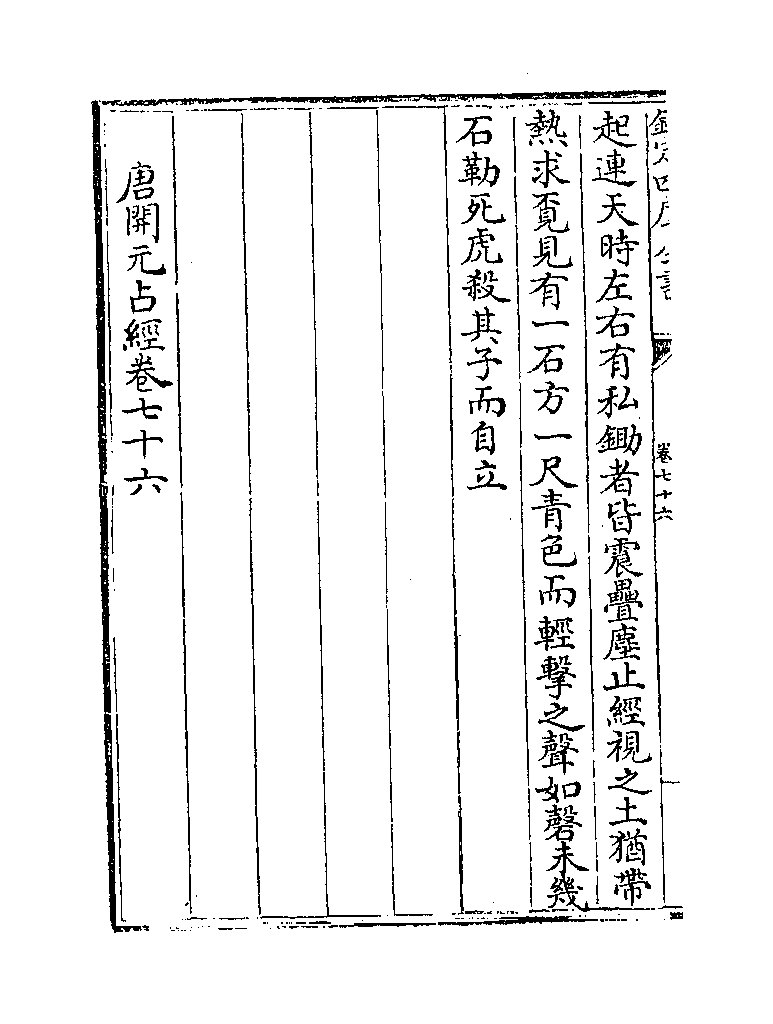 欽定四庫全書
卷七十六
起連天時左右有私鋤者皆震疊塵止經視之土猶帶
熱求覔見有一石方一尺青色而輕擊之聲如磬未幾
石勒死虎殺其子而自立
唐開元占經卷七十六